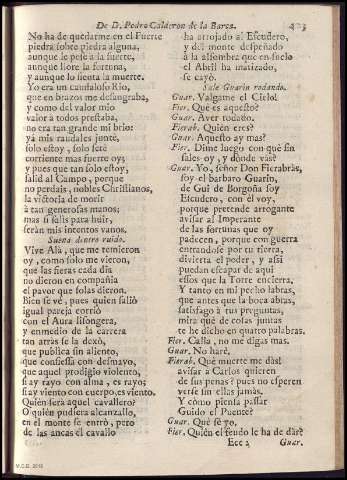 De D. Pedro Calderon de la Barca. 423
No ha de quedarme en el Fuerte
piedra sobre piedra alguna,
aunque le pese à la suerte,
aunque llore la fortuna,
y aunque lo sienta la muerte.
Yo era un caudaloso Rio,
que en brazos me desangraba,
y como del valor mio
valor à todos prestaba,
no era tan grande mi brio:
yà mis raudales junté,
solo estoy, solo serè
corriente mas fuerte oy;
y pues que tan solo estoy,
salid al Campo, porque
no perdais, nobles Christianos,
la victoria de morir
à tan generosas manos;
mas si salis para huir,
seràn mis intentos vanos.
Suena dentro ruido.
Vive Alà, que me temieron
oy, como solo me vieron,
que las fieras cada dia
no dieron en compañia
el pavor que solas dieron.
Bien se vè, pues quien saliò
igual pareja corriò
con el Aura lisongera,
y en medio de la carrera
tan atràs se la dexò,
que publica sin aliento,
que confiessa con desmayo,
que aquel prodigio violento,
si ay rayo con alma, es rayo;
si ay viento con cuerpo, es viento.
Quien serà aquel cavallero?
O quien pudiera alcanzallo,
en el monte se entrò, pero
de las ancas el cavallo
ha arrojado al Escudero,
y del monte despeñado
à la alfombra que en fuelo
el Abril ha matizado,
se cayò.
Sale Guarin rodando.
Guar. Valgame el Cielo!
Fier. Què es aquesto?
Guar. Aver rodado.
Fierab. Quien eres?
Guar. Aquesto ay mas?
Fier. Dime luego con què fin
sales oy, y dònde vàs?
Guar. Yo, señor Don Fierabràs,
soy el barbaro Guarin,
de Gui de Borgoña soy
Escudero, con èl voy,
porque pretende arrogante
avisar al Imperante
de las fortunas que oy
padecen, porque con guerra
entrandose por tu tierra,
divierta el poder, y assi
puedan escapar de aqui
essos que la Torre encierra,
Y tanto en mi pecho labras,
que antes que la boca abras,
satisfago à tus preguntas,
mira què de cosas juntas
te he dicho en quatro palabras.
Fier. Calla, no me digas mas.
Guar. No harè.
Fierab. Què muerte me dàs!
avisar à Carlos quieren
de sus penas? pues no esperen
verse sin ellas jamàs.
Y còmo piensa passar
Guido el Puente?
Guar. Què sè yo.
Fier. Quièn el feudo le ha de dàr?
Eee 2 Guar.